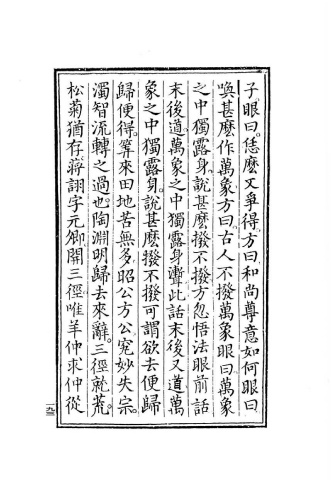 子眼曰恁麽又爭得方曰和尚尊意如何眼曰
喚甚麽作萬象方曰古人不撥萬象眼曰萬象
之中獨露身說甚麽撥不撥方忽悟法眼前話
末後道萬象之中獨露身舋此話末後又道萬
象之中獨露身說甚麽撥不撥可謂欲去便歸
歸便得筭來田地苦無多昭公方公宛妙失宗
濁智流轉之過也陶淵明歸去來辭三徑就荒
松菊猶存蔣詡字元卿開三徑唯羊仲求仲從